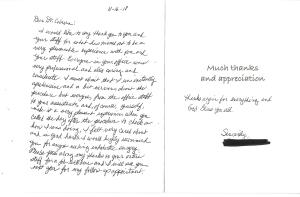 11-16-18
Dear Dr.
I would like to say thank you to you and
your staff for what turned out to be a
very pleasurable experience with you and
your staff. Everyone in your office was
very professional, and also caring and
considerate. I must admit that I was
apprehensive, and a bit nervous about the
procedure, but everyone from the office staff
to your assistants and, of course, yourself
made it a very pleasant experience when you
called the day after the procedure to check on
how I was doing. I felt very cared about
and in good hands. I would highly recommend
you for anyone needing
Please pass along my thanks to your entire
staff for a job well done and I will see you
next year for my follow-up appointment.
Much thanks
and appreciation
Thanks again for everything and
God bless you all.
Sincerely,